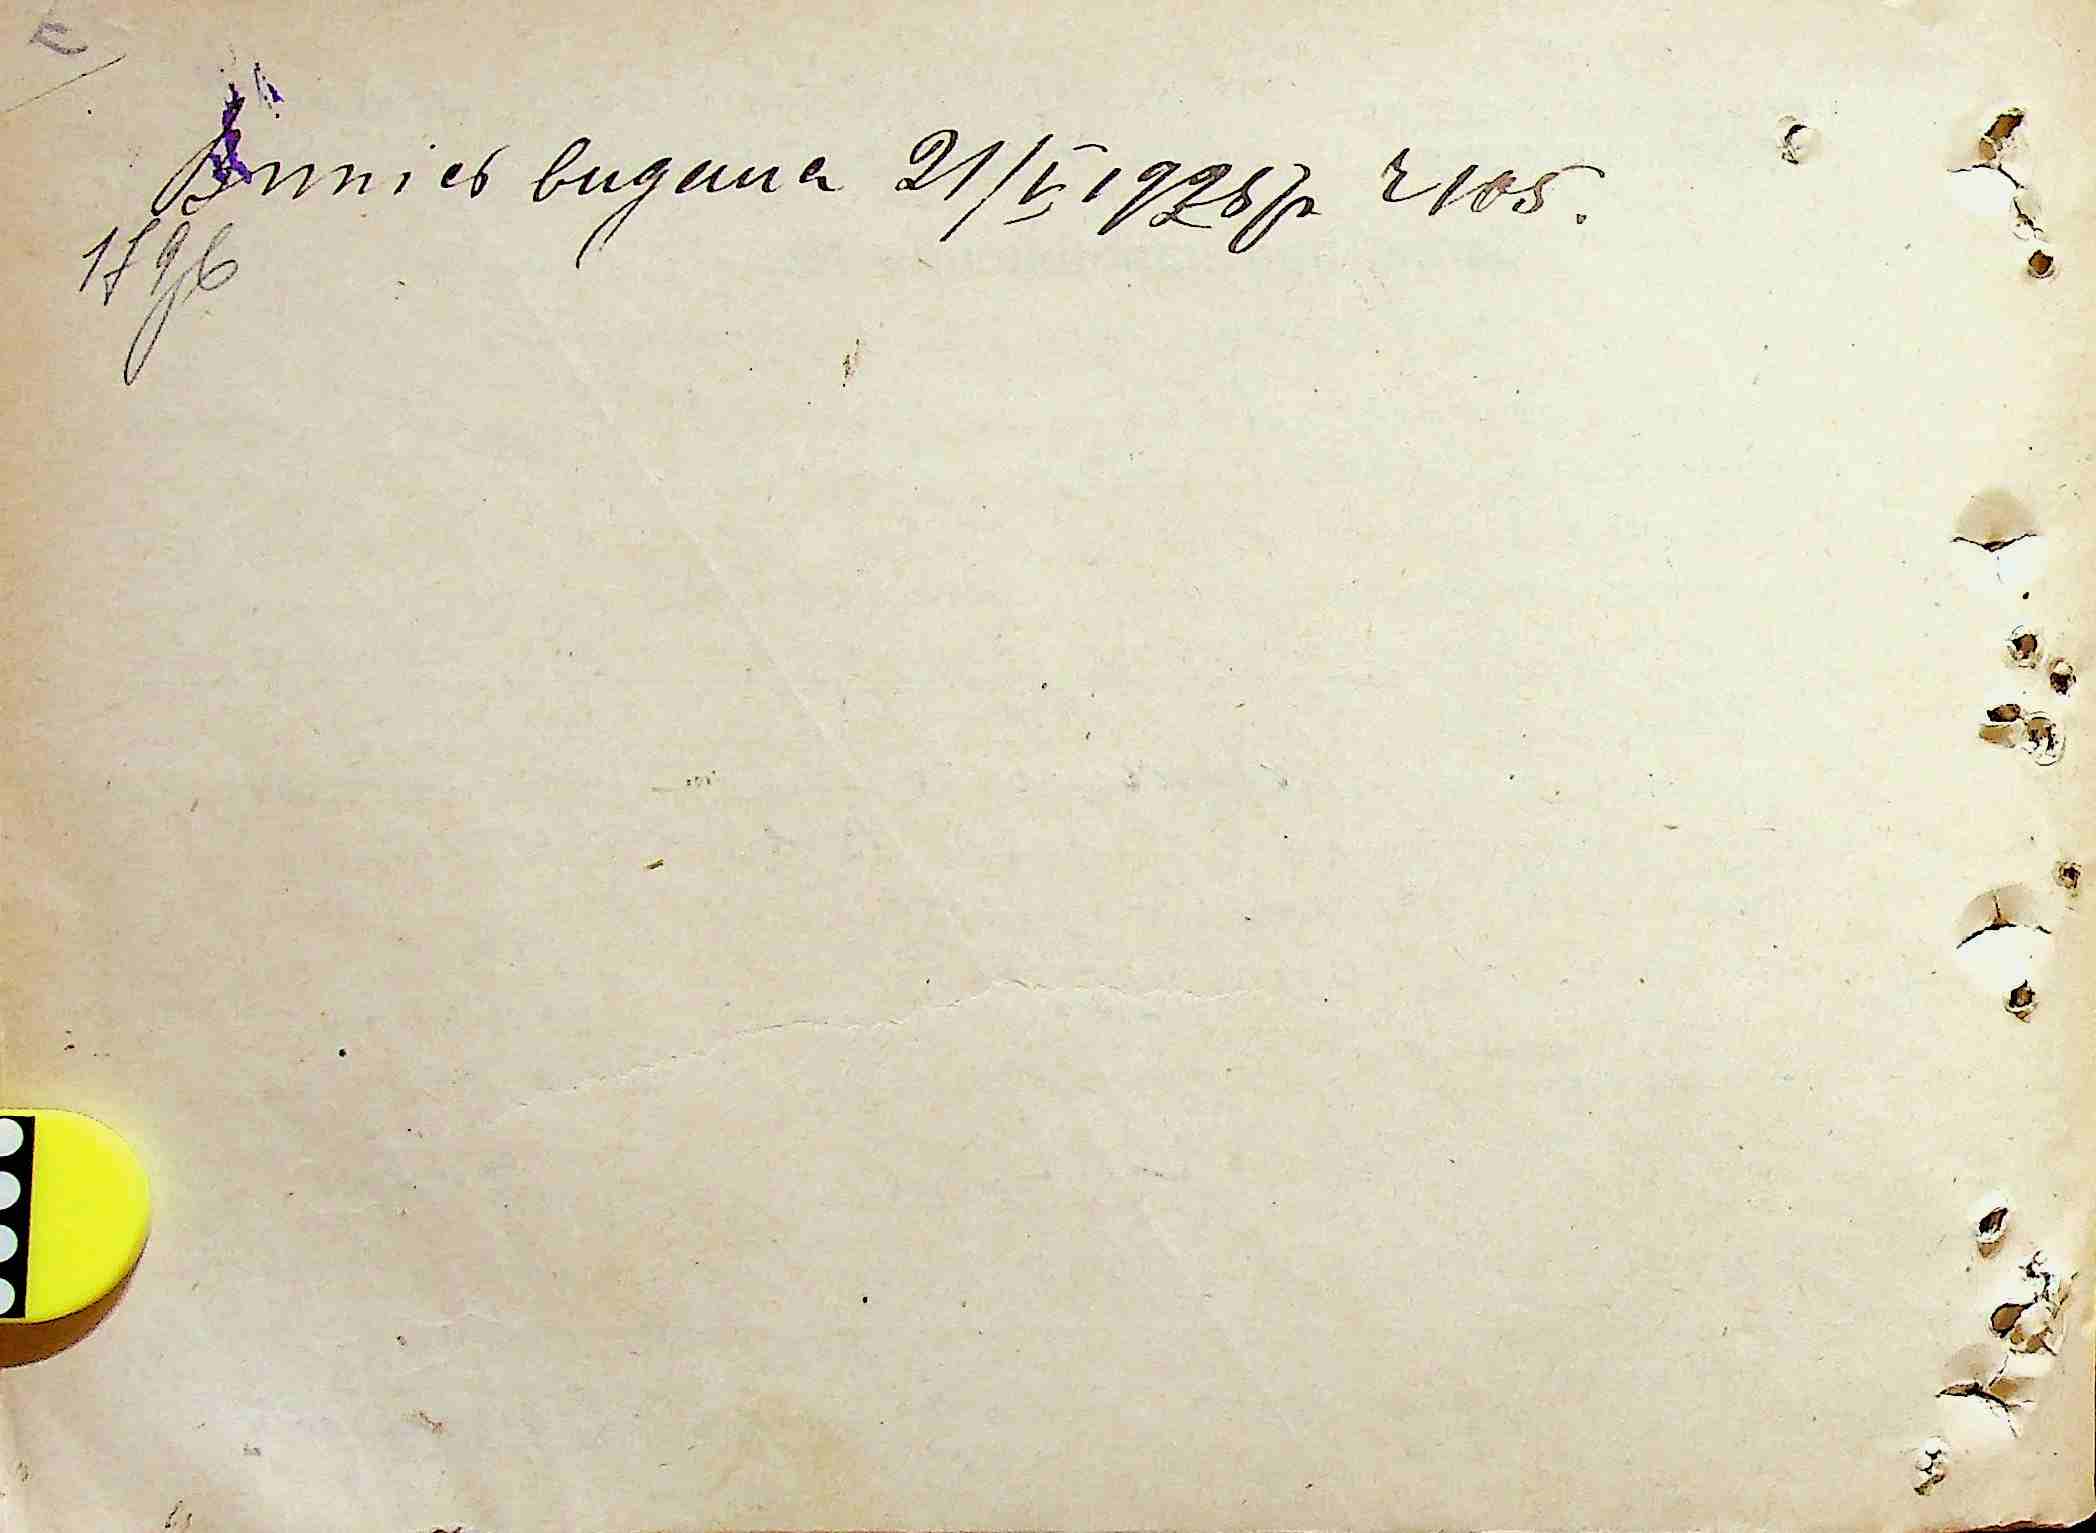 Випись видана 21/V 1928 р ч 105.
1796